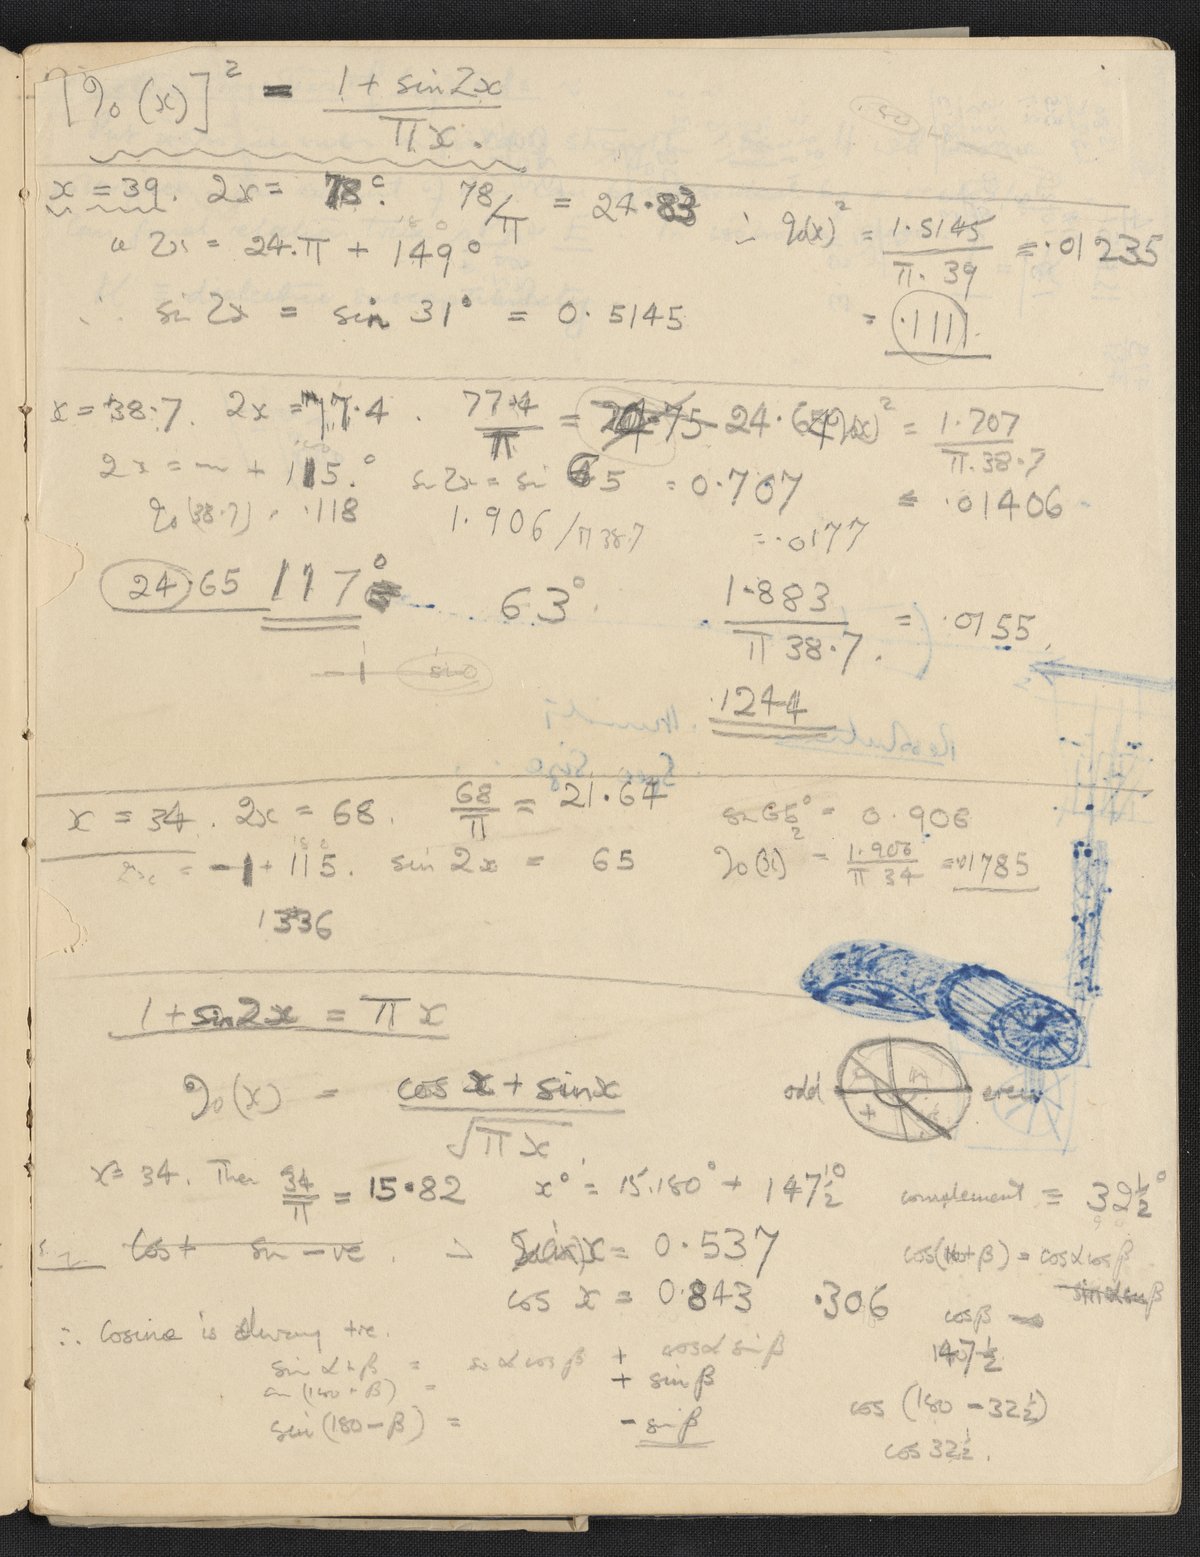 [J₀(x)]² = 1 + sin 2x
πx.
x = 39. 2x = 78ᶜ. 78/π = 24.83
2x = 24.π + 149° ∴ J₀(x)² = 1.5145 / π.39 = .01235
∴ sin 2x = sin 31° = 0.5145 = .111
x = 38.7. 2x = 77.4. 77.4/π = 24.75 24.64 J₀(x)² = 1.707 / π.38.7
2x = + 115.° sin 2x = sin 65 = 0.707 = .01406
J₀(38.7) = .118 1.906/π38.7 = .0177
24.65 117° 63° 1.883 / π 38.7. = .0155
.1244
x = 34. 2x = 68. 68/π = 21.64 sin 65° = 0.906
2x = -1 + 115. sin 2x = 65 J₀(x) = 1.906 / π 34 = .01785
1336
1 + sin 2x = πx
J₀(x) = cos x + sin x / √πx odd + even
x = 34. Then 34/π = 15.82 x° = 15.180° + 147½° complement = 32½°
cos + sin -ve. ∴ sin x = 0.537 cos(180+β) = cosα cosβ
sinα sinβ
cos x = 0.843 .306 cosβ
∴ Cosine is always +ve. 147½
sin α+β = sinα cosβ + cosα sinβ
sin(180+β) = + sinβ
sin(180-β) = - sinβ cos (180 - 32½)
cos 32½.